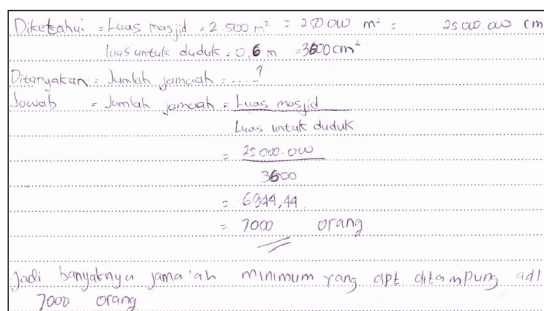 Diketahui = Luas masjid = 2.500 m² = 250.000 m² = 25.000.000 cm
luas untuk duduk = 0,6 m = 3600 cm²
Ditanyakan = Jumlah jamaah = .... ?
Jawab = Jumlah jamaah = Luas masjid
Luas untuk duduk
= 25.000.000
3600
= 6944,44
= 7000 orang
Jadi banyaknya jama'ah minimum yang dpt ditampung adl
7000 orang